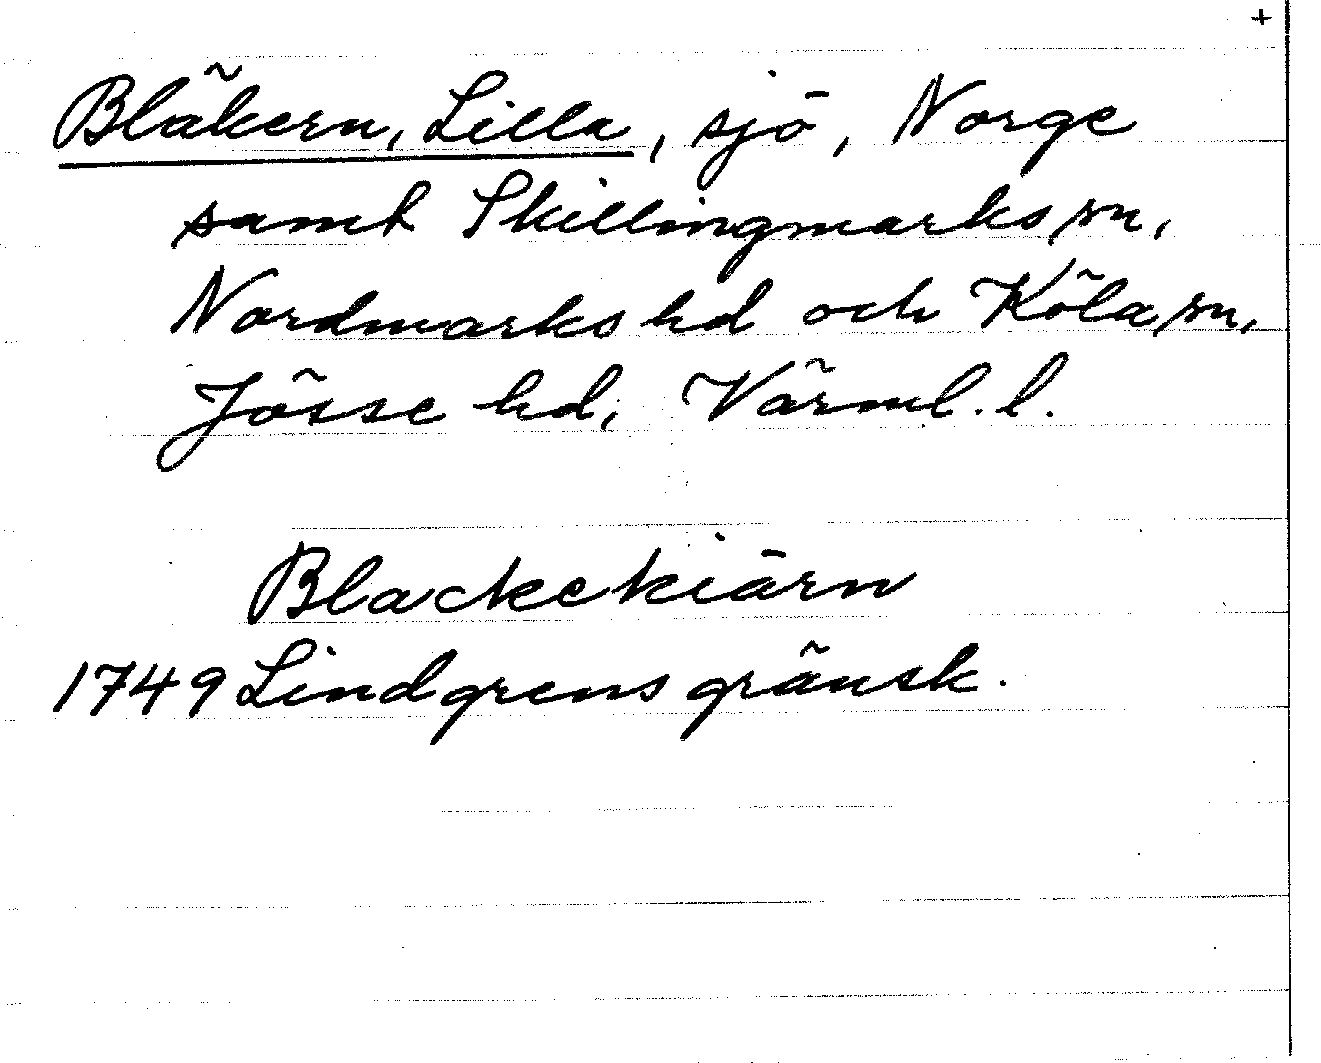 +
Bläkern, Lilla, sjö, Norge
samt Skillingmarks sn,
Nordmarks hd och Köla sn,
Jösse hd, Värml. l.
Blackekiärn
1749 Lindgrens gränsk.